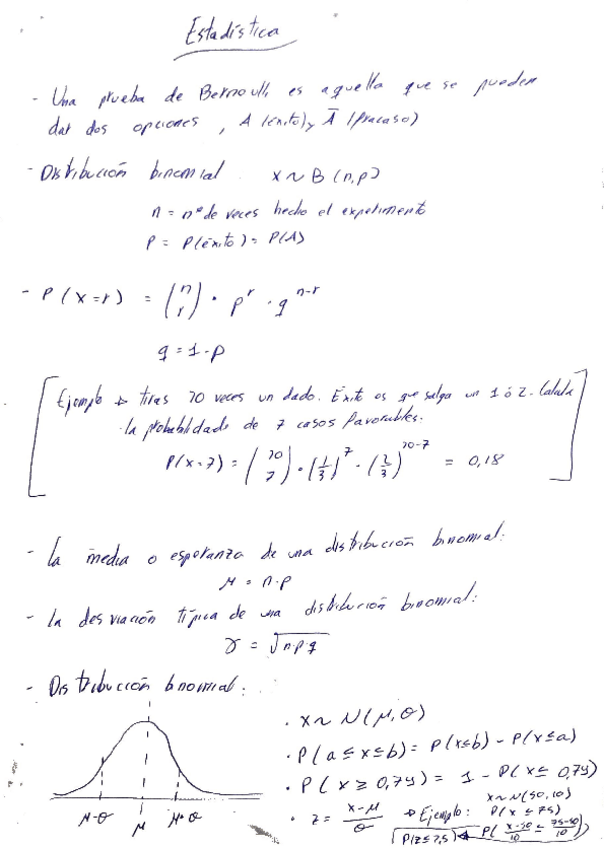 Estadística
- Una prueba de Bernoulli es aquella que se pueden
dar dos opciones, A (éxito) y Ā (fracaso)
- Distribución binomial x ~ B (n,p)
n = nº de veces hecho el experimento
P = P(éxito) = P(A)
- P(x=r) = (n r) · p^r · q^(n-r)
q = 1-p
Ejemplo → tiras 20 veces un dado. Éxito es que salga un 1 ó 2. Calcula
la probabilidad de 7 casos favorables.
P(x=7) = (20 7) · (1/3)^7 · (2/3)^(20-7) = 0,18
- La media o esperanza de una distribución binomial:
μ = n·p
- la desviación típica de una distribución binomial:
σ = √n·p·q
- Distribución binomial:
· x ~ N(μ,σ)
· P(a ≤ x ≤ b) = P(x ≤ b) - P(x ≤ a)
· P(x ≥ 0,74) = 1 - P(x ≤ 0,74)
x ~ N(50,10)
· z = (x-μ)/σ → Ejemplo: P(x ≤ 75)
P(z ≤ 2,5) ← P((x-50)/10 ≤ (75-50)/10)
μ-σ μ μ+σ